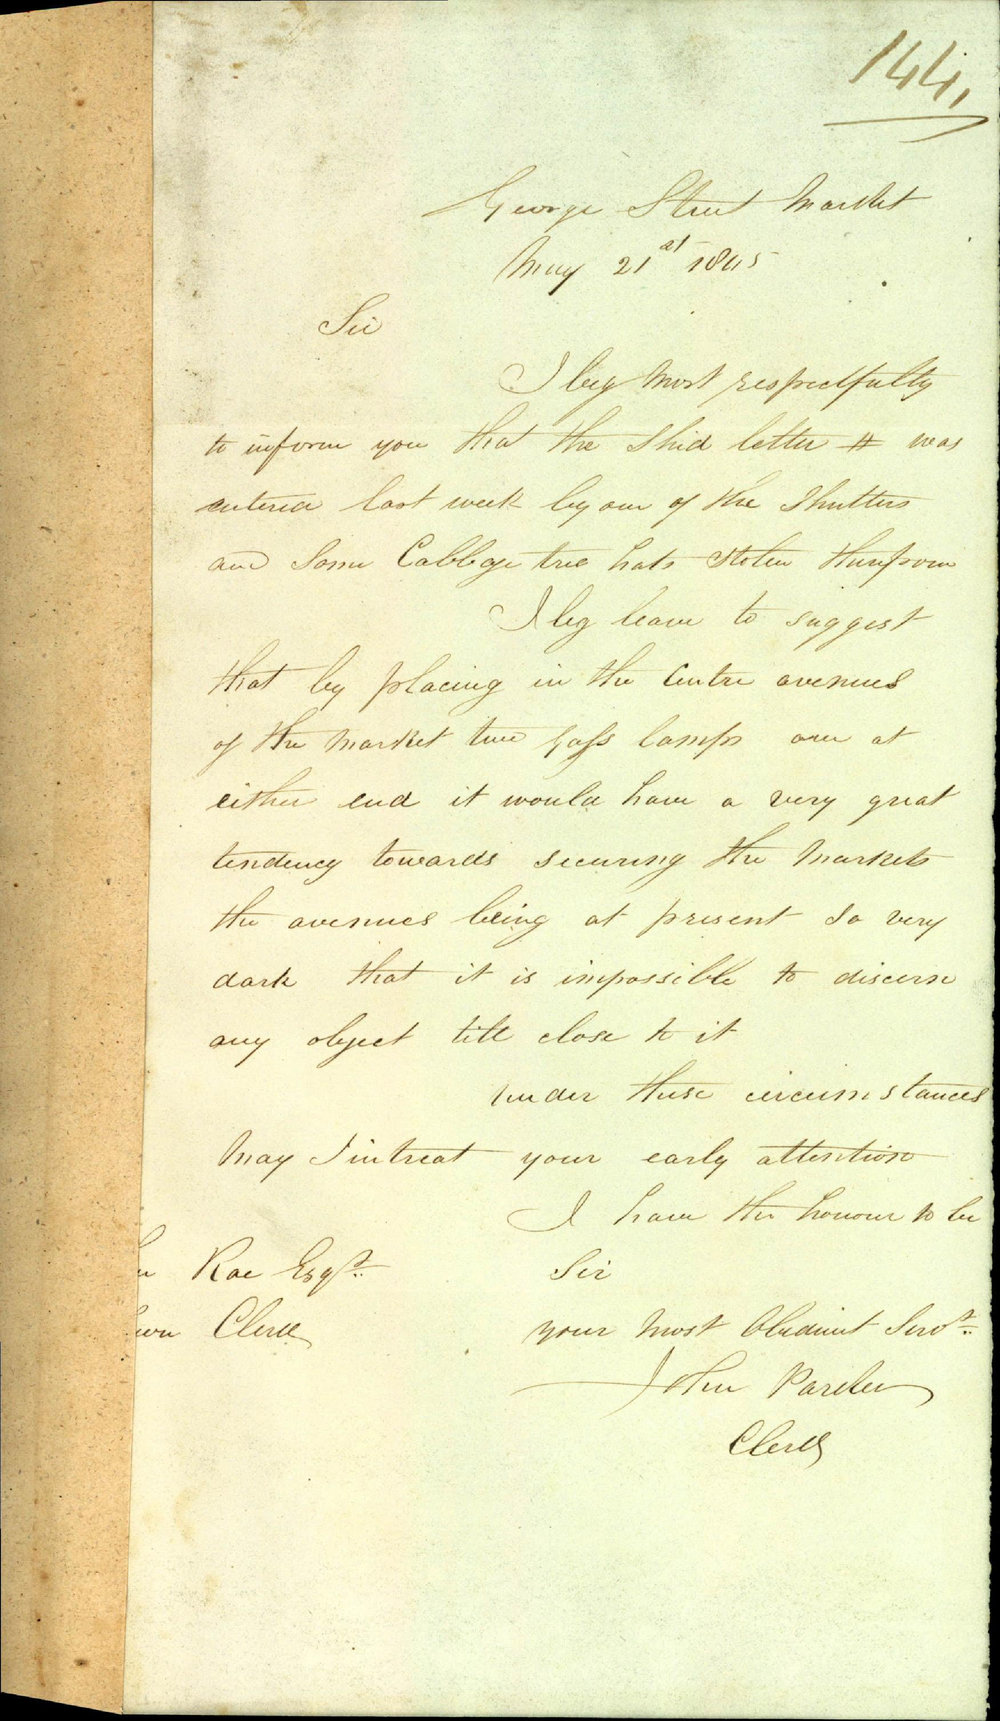 144,
George Street Market
May 21st 1845
Sir
I beg most respectfully
to inform you that the Shed letter H was
entered last week by one of the Shutters
and some Cabbage tree hats stolen therefrom
I beg leave to suggest
that by placing in the Centre avenues
of the market two Gass lamps one at
either end it would have a very great
tendency towards securing the Markets
the avenues being at present so very
dark that it is impossible to discern
any object till close to it
under these circumstances
May I intreat your early attention
I have the honour to be
Rae Esqr.
Sir
Clerk
your most Obedient Servt.
John Parker
Clerk